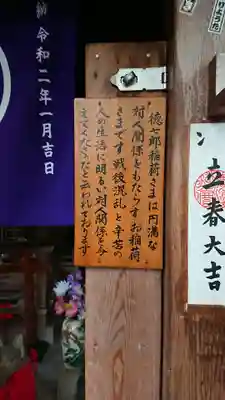 納 令和二年一月吉日
徳七郎稲荷さまは円満な
対人関係をもたらすお稲荷
さまです 戦後混乱と辛苦の
人の生活に明るい対人関係を与
えてくださったと云われております
立春大吉